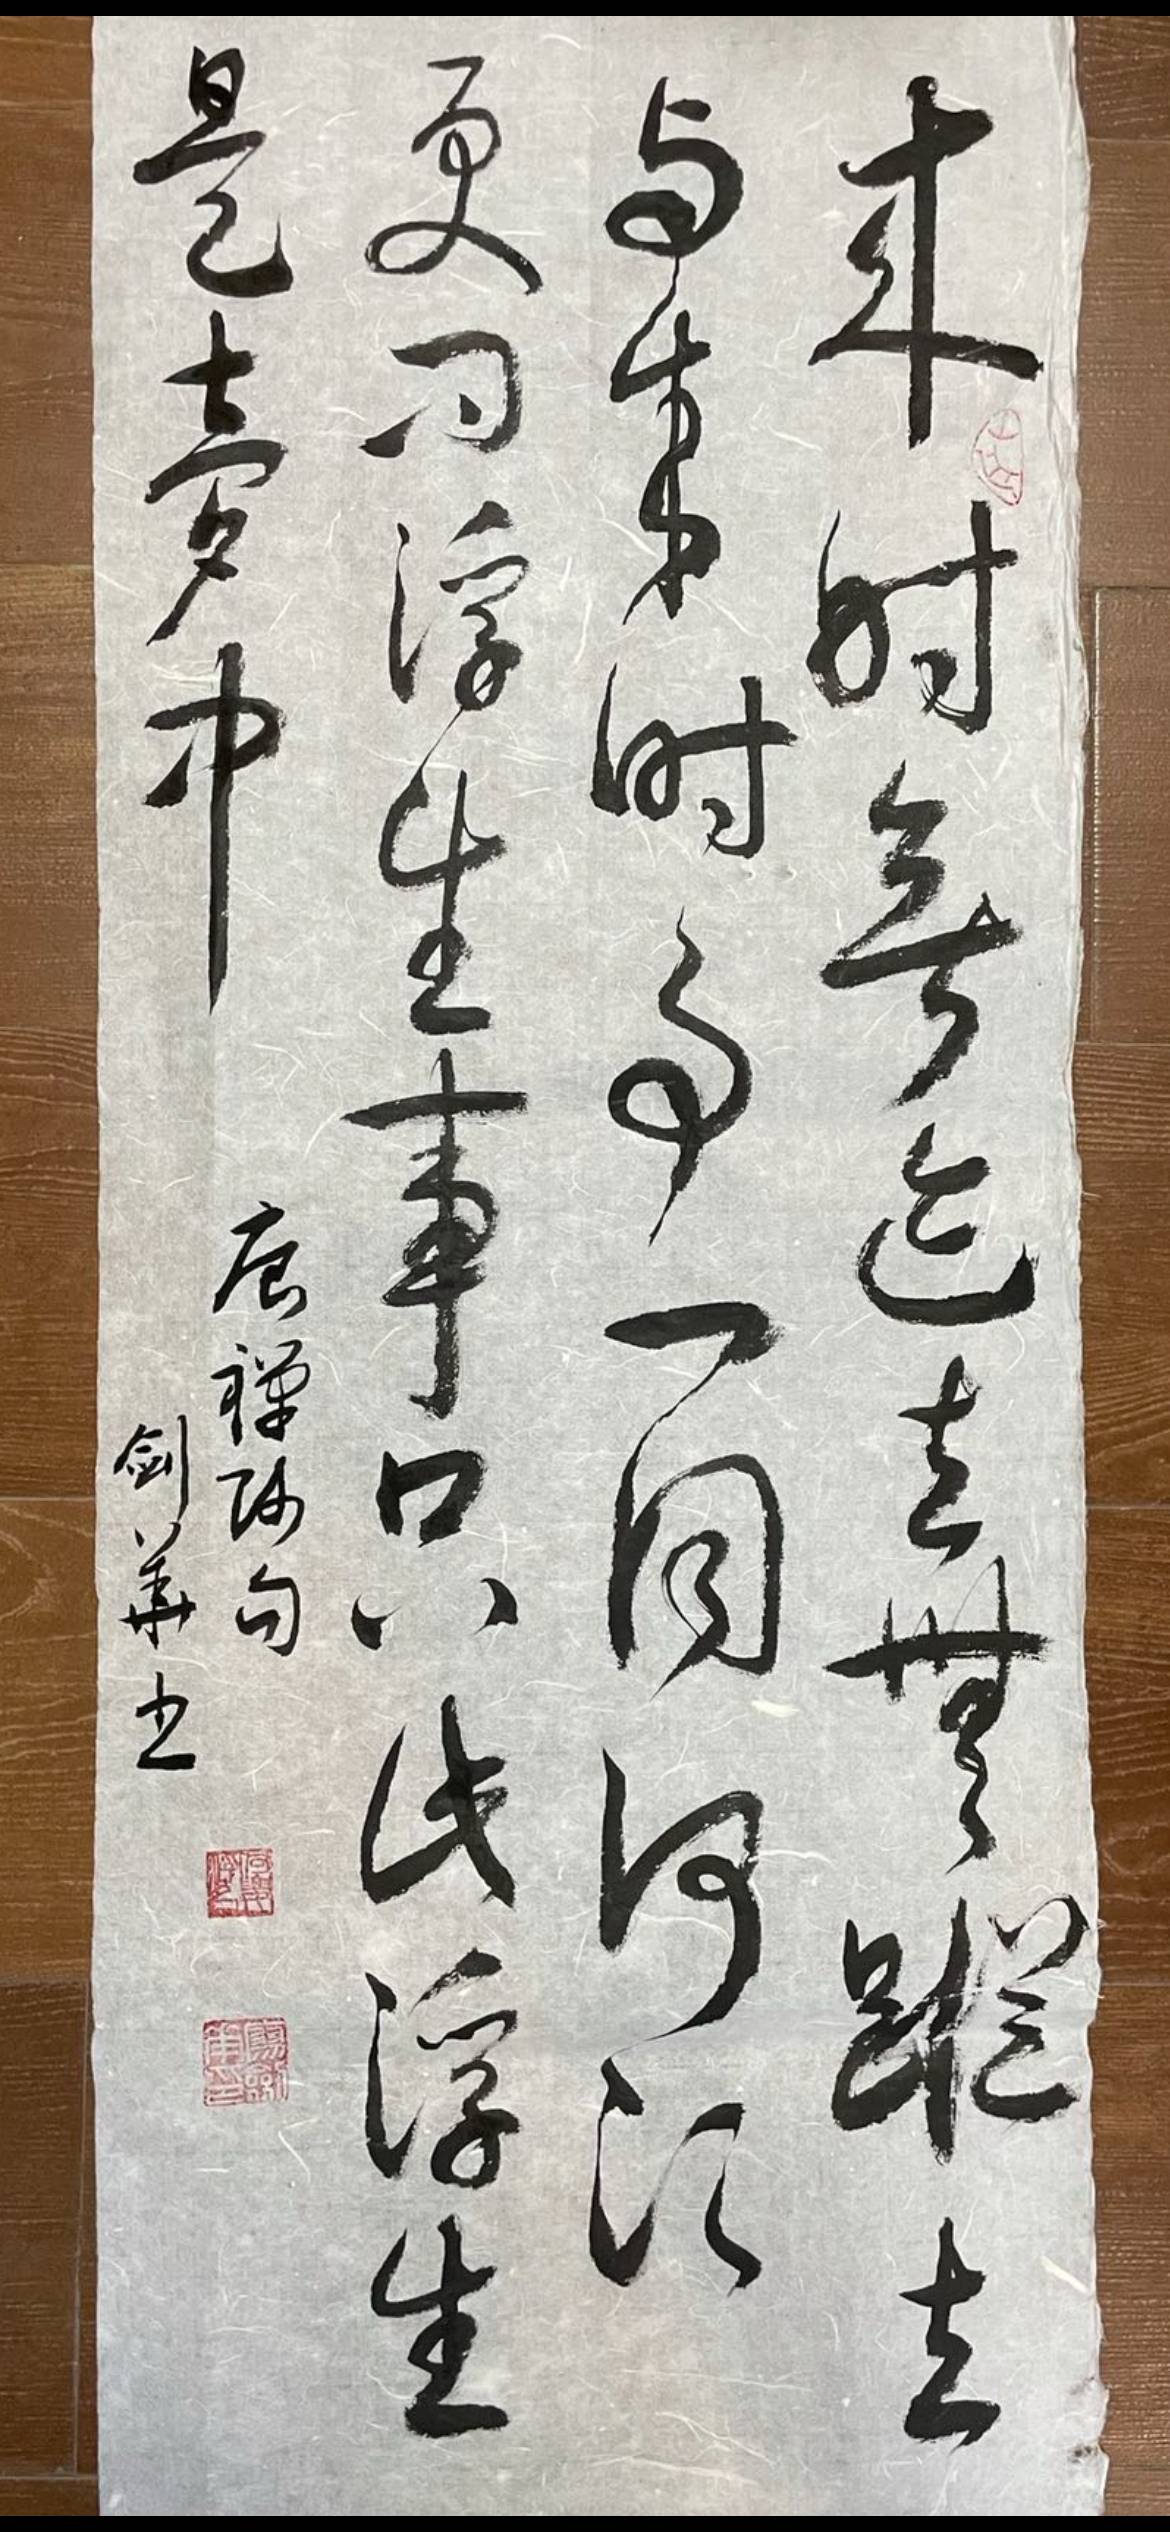 来时無迹去無蹤去
与来时事一同何须
更问浮生事只此浮生
是夢中
唐禪师句
剑華书